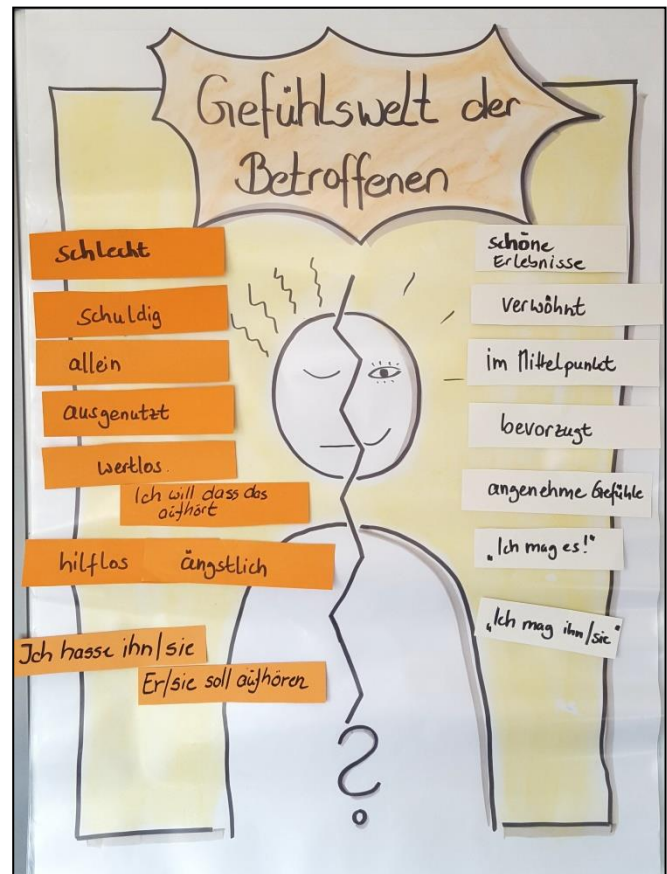 Gefühlswelt der
Betroffenen
schlecht
schuldig
allein
ausgenutzt
wertlos.
Ich will dass das
aufhört
hilflos
ängstlich
Ich hasse ihn/sie
Er/sie soll aufhören
schöne
Erlebnisse
verwöhnt
im Mittelpunkt
bevorzugt
angenehme Gefühle
"Ich mag es!"
"Ich mag ihn/sie"
?